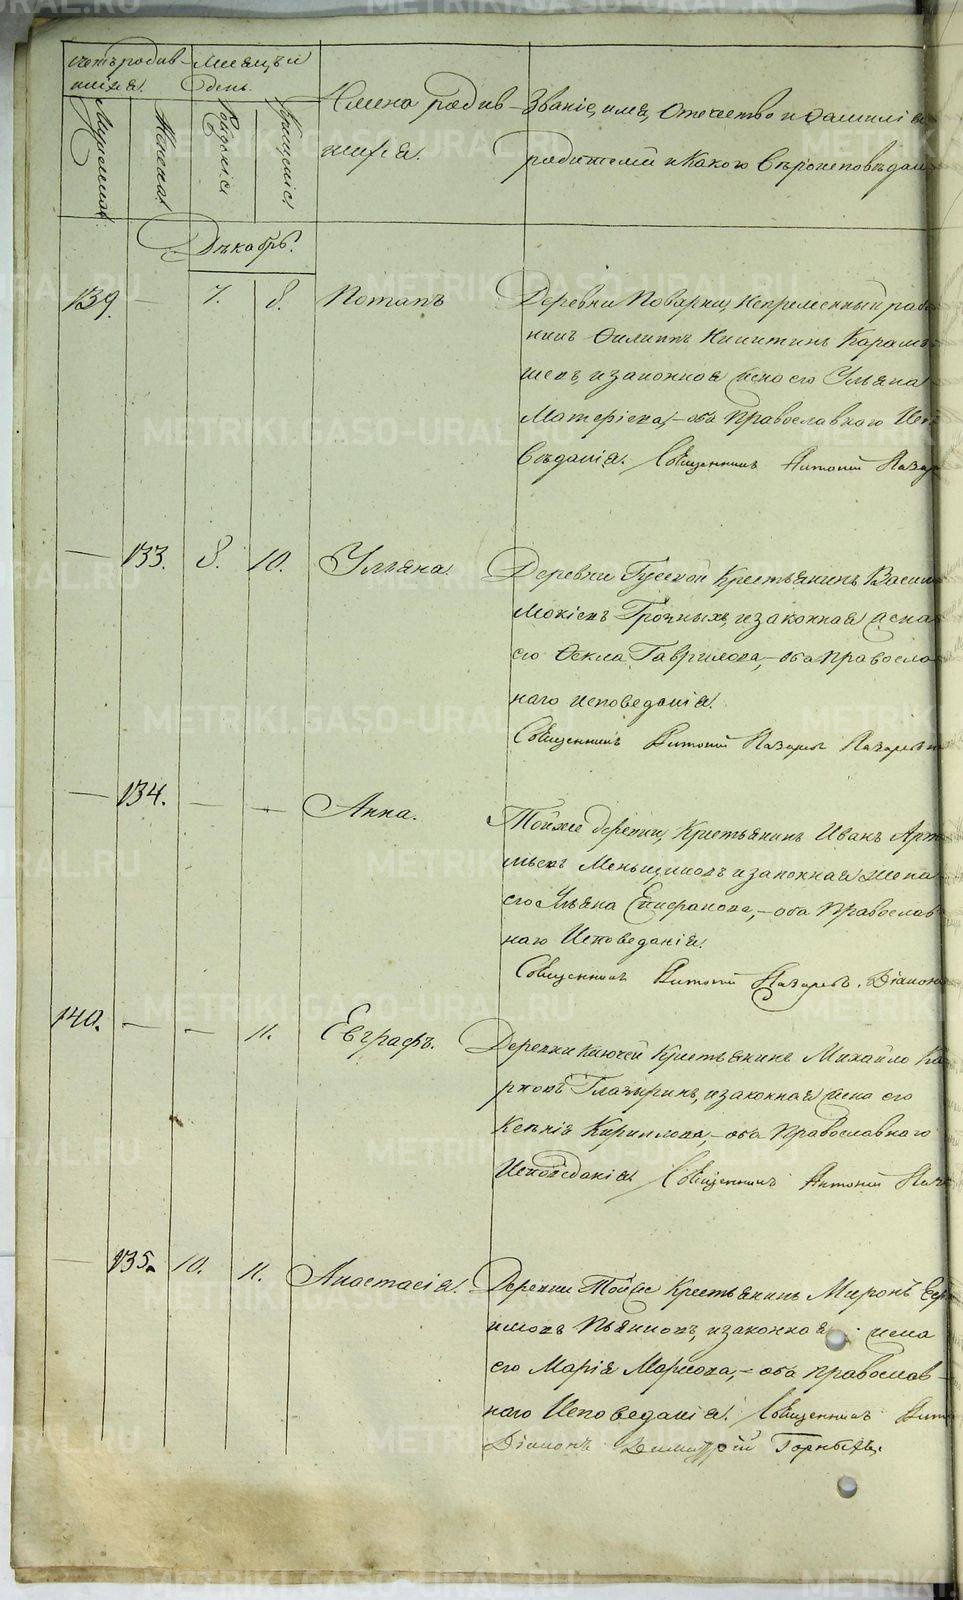 Счетъ родив-
шихся.
Мѣсяцъ и
день.
Мужеска.
Женска.
Рожденія
Крещенія
Имена родив-
шихся.
Званіе, имя, отечество и фамилія
родителей и какого вѣроисповѣдан
Дѣкабрь.
139. — 7. 8. Потапъ
Деревни Поварни, Непременный рабо
никъ Филиппъ Никитинъ Карам
шевъ, и законная жена его Ульяна
Матвѣева, – оба Православнаго Испо
вѣданія. Священникъ Антоній Лазар
— 133. 8. 10. Ульяна.
Деревни Гусевой Крестьянинъ Васил
Мокіевъ Грозныхъ, и законная жена
его Фекла Гаврилова, – оба Правосла
наго исповеданія.
Священникъ Антоній Лазаревъ Лазаревъ
— 134. — — Анна.
Тойже деревни, Крестьянинъ Иванъ Арт
мьевъ Меньщиковъ и законная жена
его Ульяна Епифанова, – оба Православ
наго Исповеданія.
Священникъ Антоній Лазаревъ. Діаконъ
140. — — 11. Евграфъ.
Деревни Ключей Крестьянинъ Михайло Ка
рповъ Глазыринъ, и законная жена его
Ксенія Кириллова, – оба Православнаго
Исповѣданія. Священникъ Антоній Лаз
— 135. 10. 11. Анастасія.
Деревни Тойже Крестьянинъ Миронъ Еф
имовъ Пьянковъ, и законная жена
его Марія Маркова, – оба православ-
наго Исповеданія. Священникъ Анто
Діаконъ Димитрій Горныхъ.